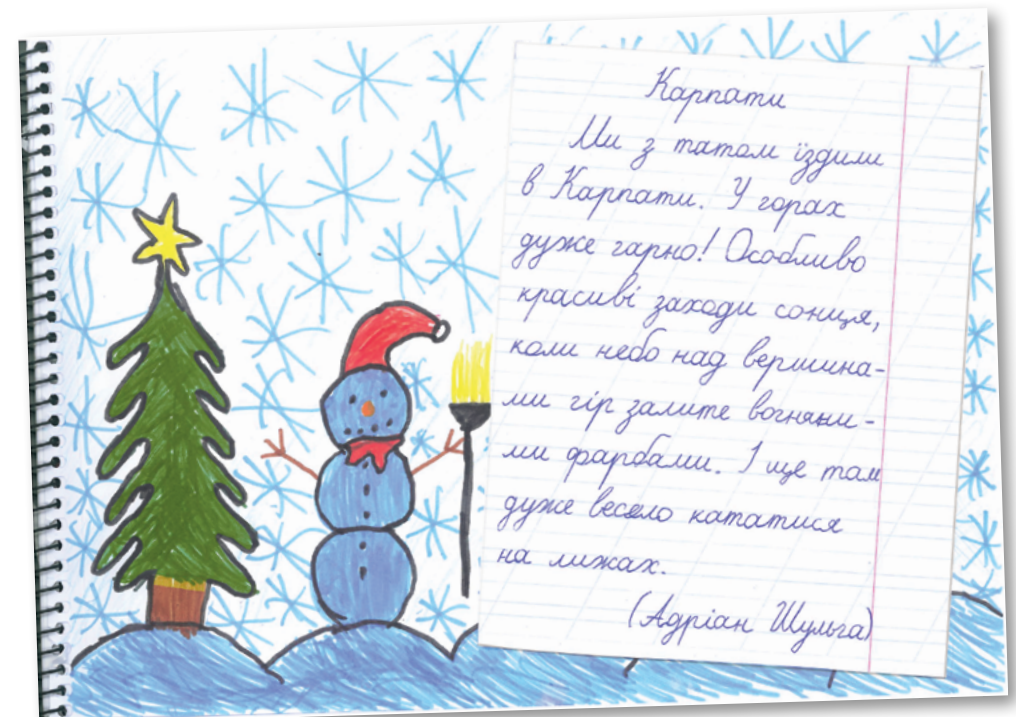 Карпати
Ми з татом їздили
в Карпати. У горах
дуже гарно! Особливо
красиві заходи сонця,
коли небо над вершина-
ми гір залите вогняни-
ми фарбами. І ще там
дуже весело кататися
на лижах.
(Адріан Шульга)